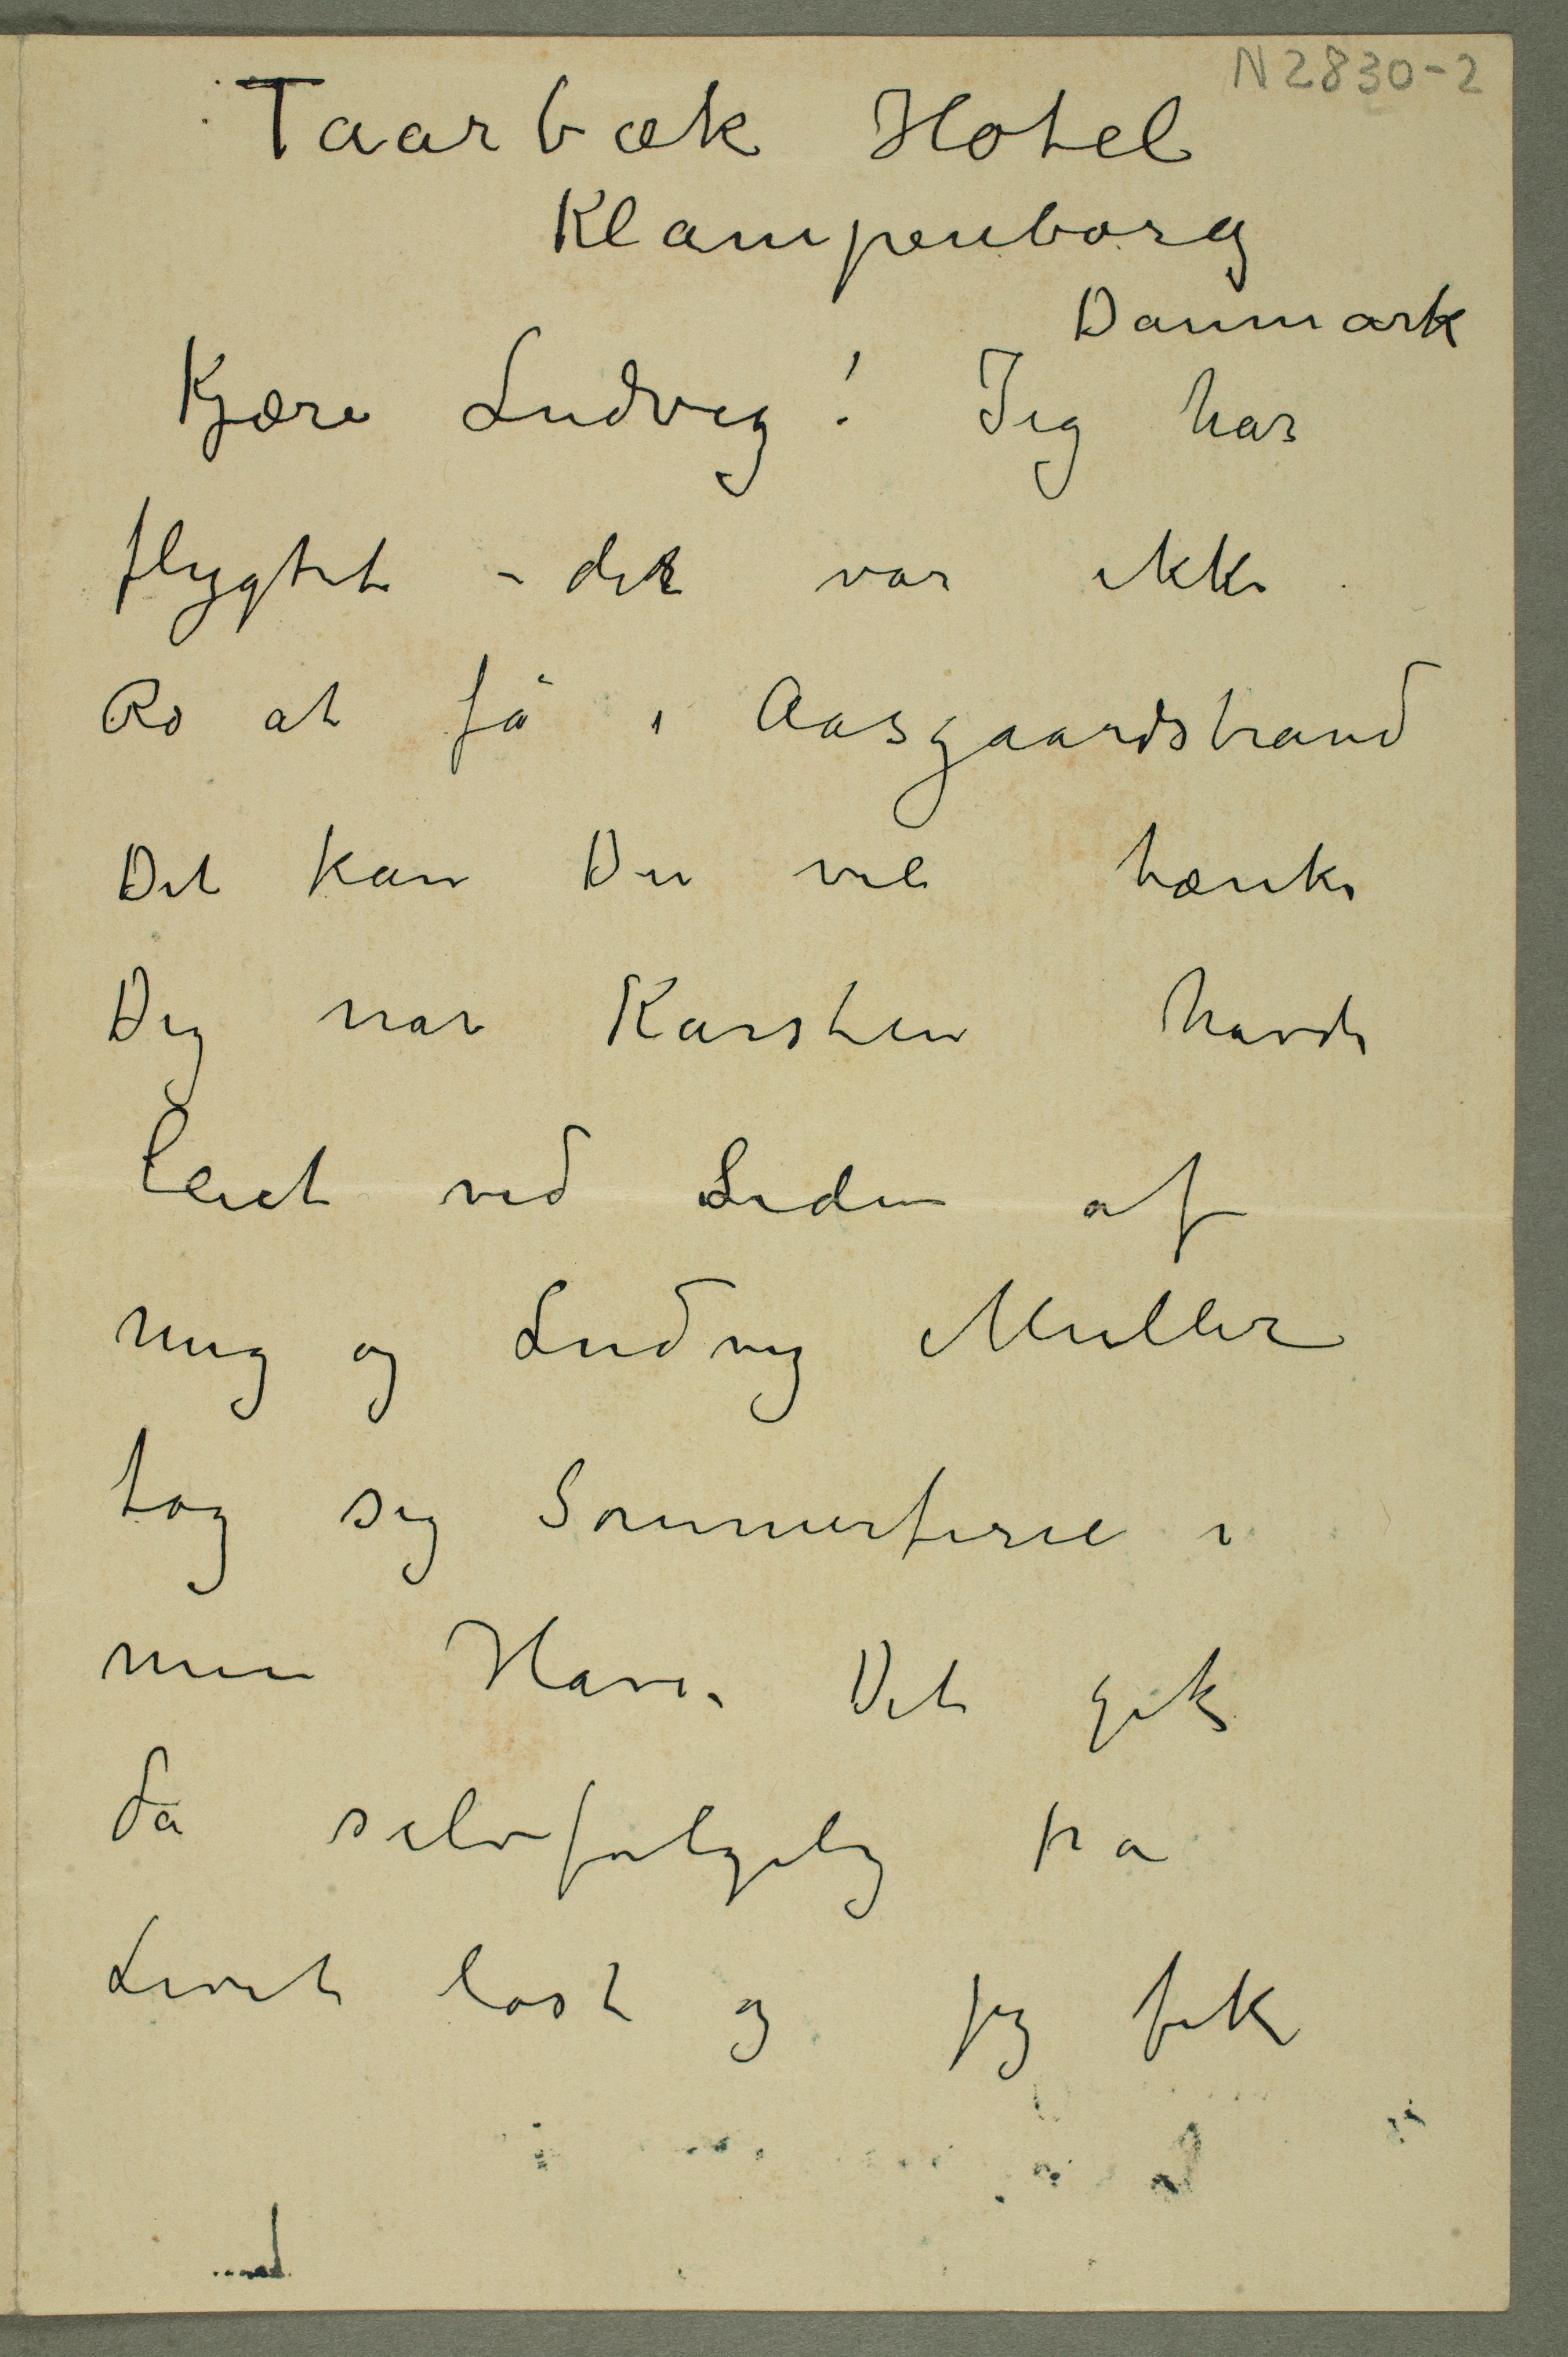 N 2830-2
Taarbæk Hotel
Klampenborg
Danmark
Kjære Ludvig! Jeg har
flygtet – der var ikke
Ro at få i Aasgaardstrand
Det kan Du vel tænke
Dig når Karsten havde
leiet ved Siden af
mig og Ludvig Müller
tog sig Sommerferie i
min Have. Det gik
da selvfølgelig fra
Livet løst og jeg fik